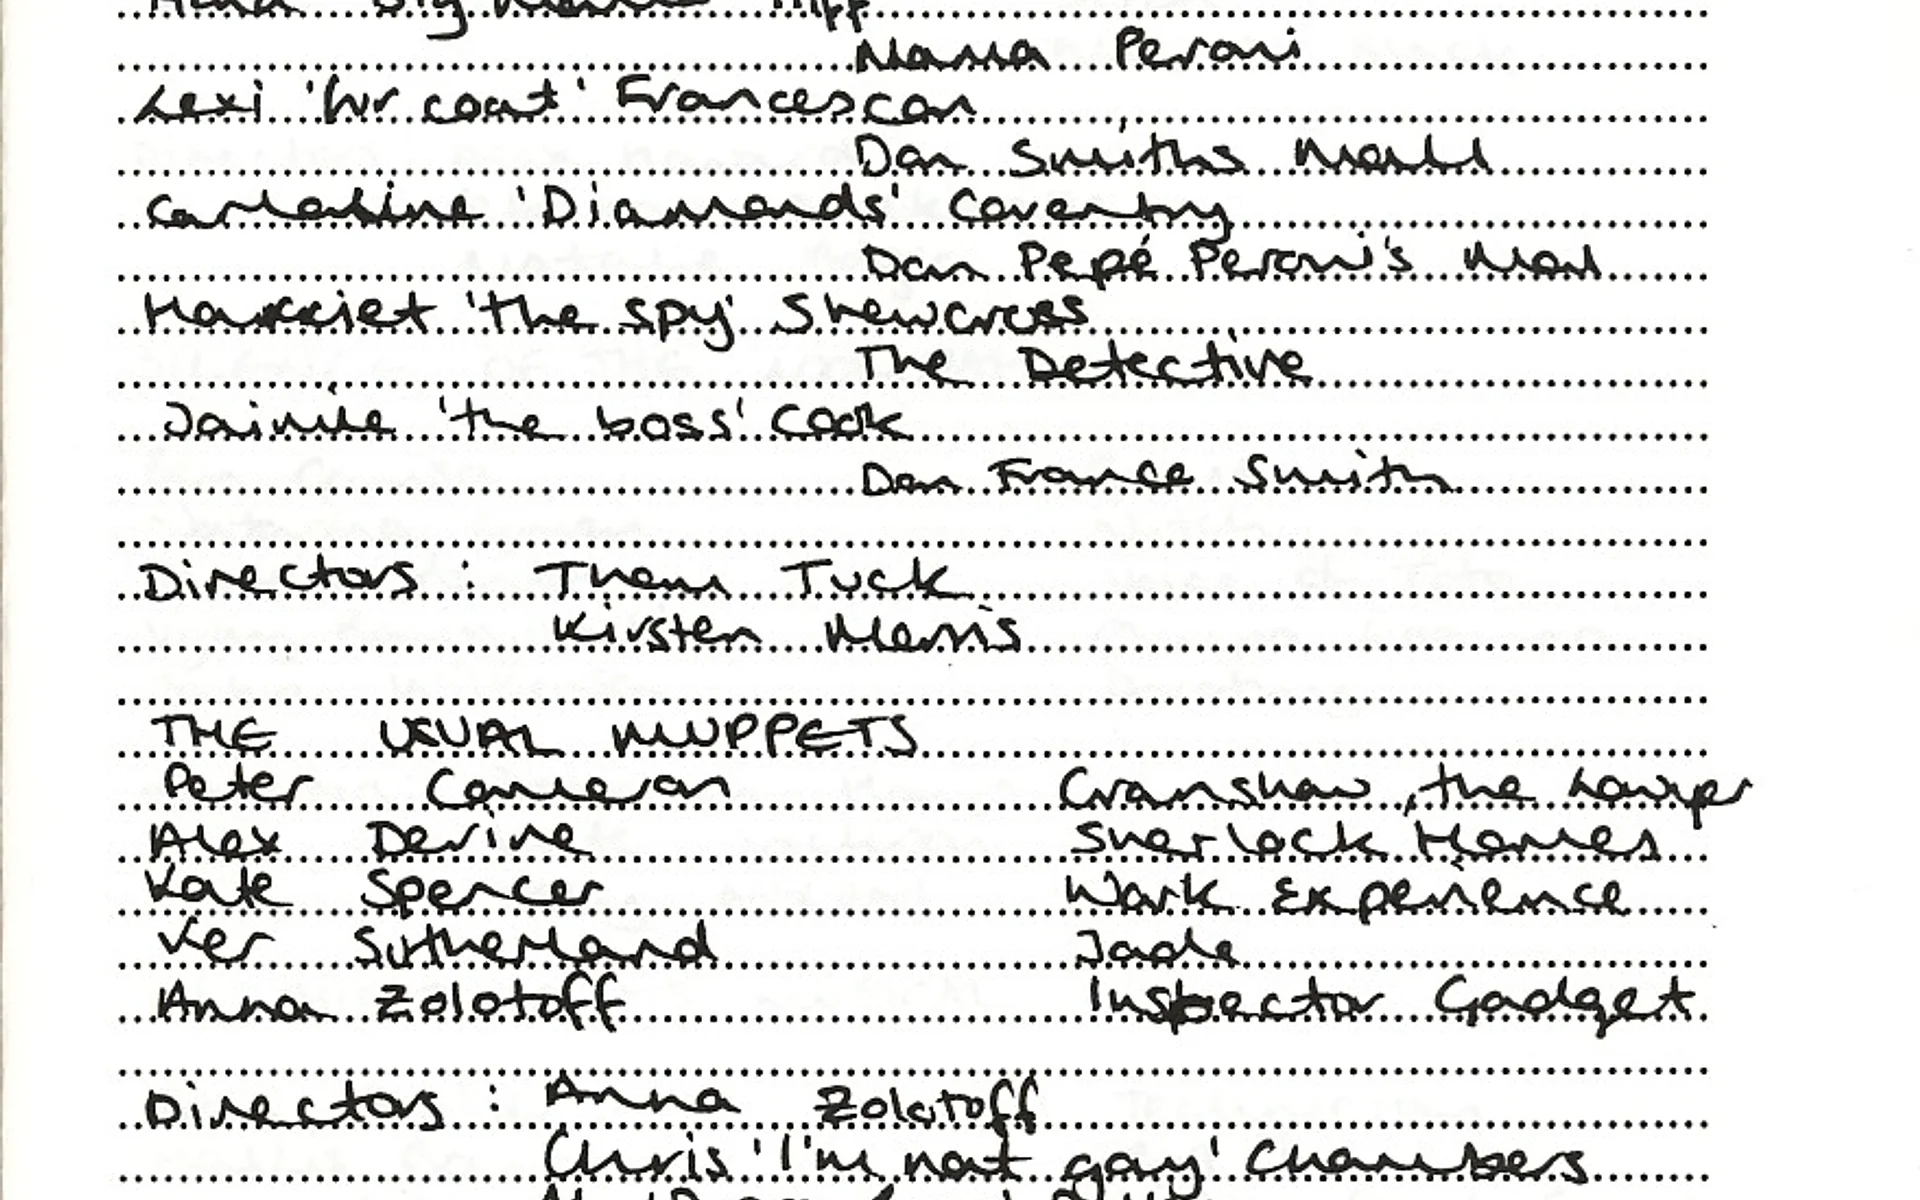 Mama Peroni
Lexi 'fur coat' Francescon
Don Smiths
'Diamonds' Coventry
Don Pepé Peroni's
Harriet 'the spy' Shewcross
The Detective
Jaimie 'the boss' Cook
Don France Smith
Directors : Thom Tuck
Kirsten
THE USUAL MUPPETS
Peter Cameron Cranshaw, the Lawyer
Alex Devine Sherlock Homes
Kate Spencer Work Experience
Ver Sutherland Jade
Anna Zolotoff Inspector Gadget
Directors : Anna Zolotoff
Chris 'I'm not gay' Chambers